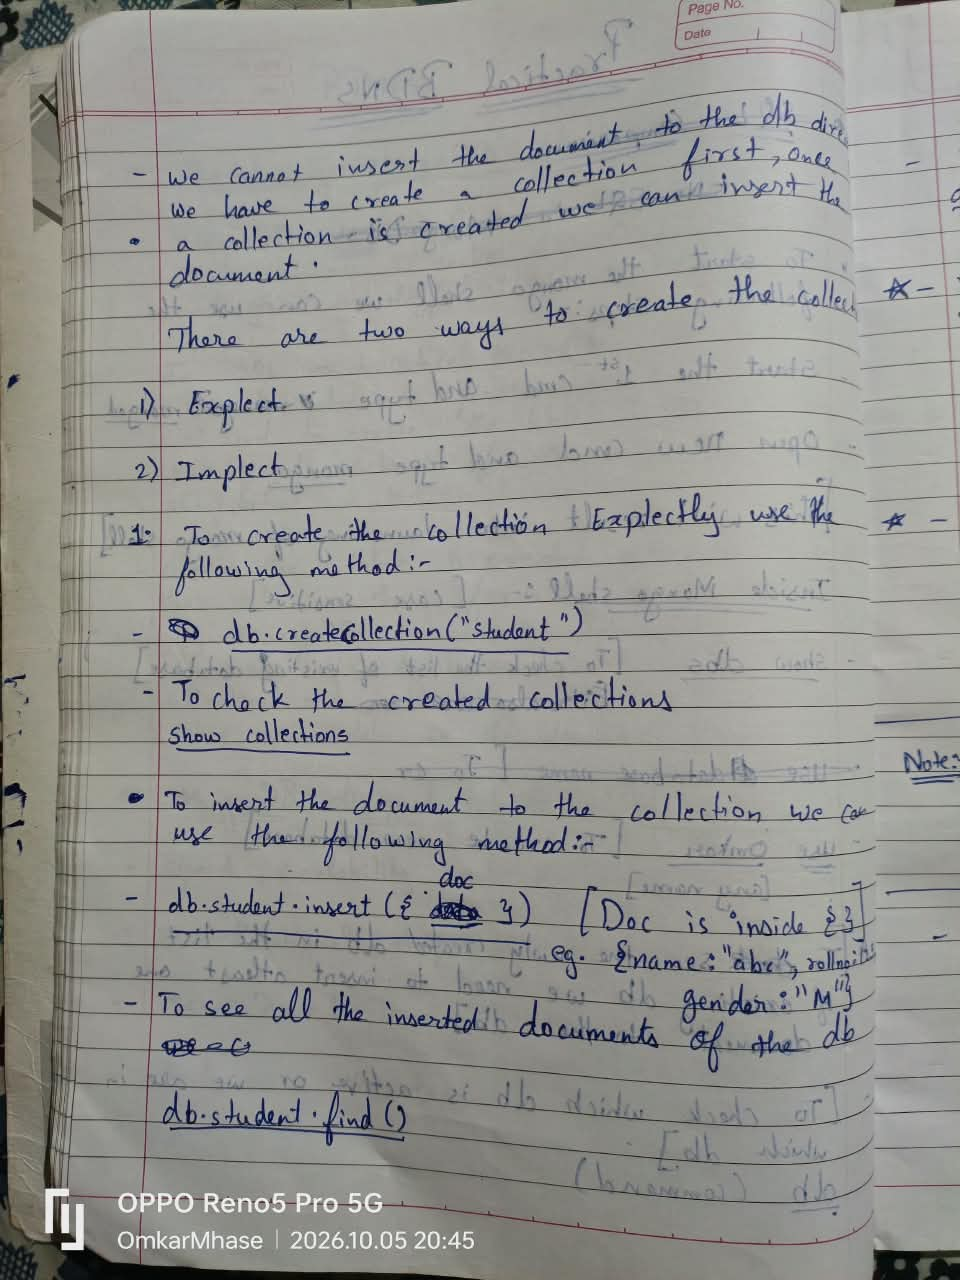 Page No.
Date
- we cannot insert the document to the db dire
we have to create a collection first, once
• a collection is created we can insert the
document.
There are two ways to create the collec
1) Explect.
2) Implect
1. To create the collection Explectly use the
following method :-
- db.createcollection("student")
- To check the created collections
show collections
Note:
• To insert the document to the collection we can
use the following method:-
doc
- db.student.insert ({ }) [Doc is inside {}]
eg. {name: "abc",
gender: "M"}
- To see all the inserted documents of the db
db.student.find ()
OPPO Reno5 Pro 5G
OmkarMhase | 2026.10.05 20:45